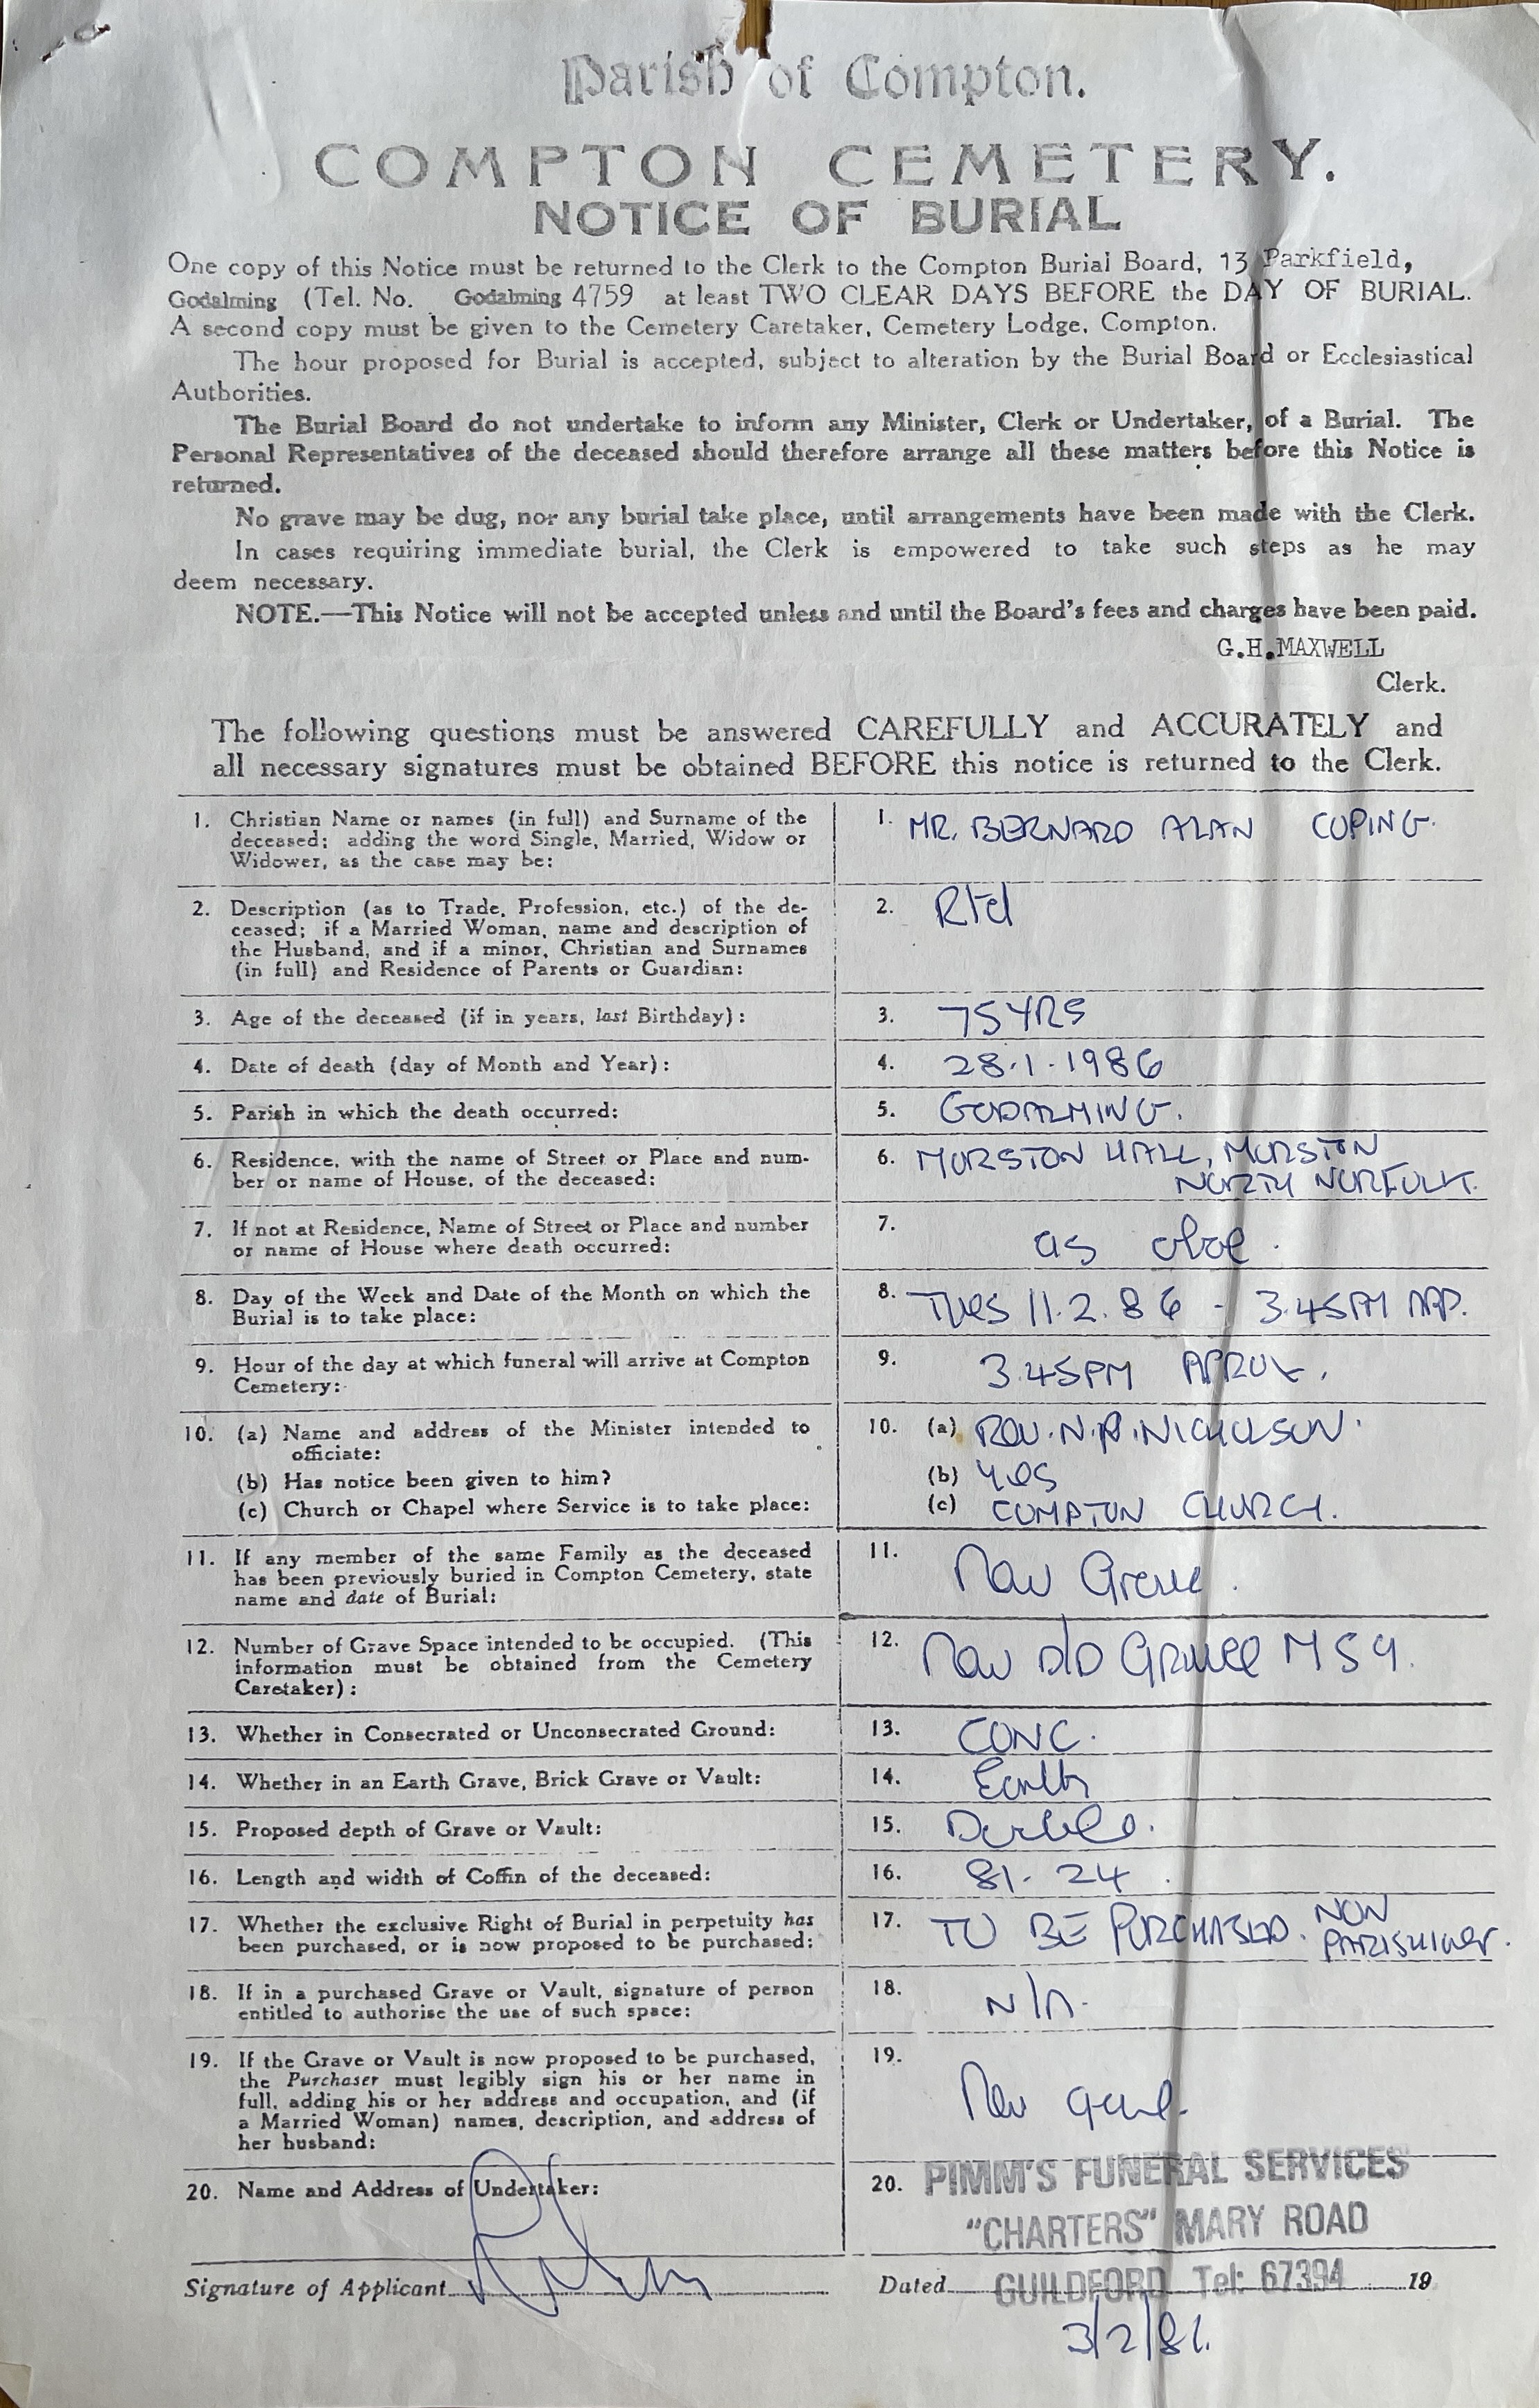 Parish of Compton.
COMPTON CEMETERY.
NOTICE OF BURIAL
One copy of this Notice must be returned to the Clerk to the Compton Burial Board, 13 Parkfield,
Godalming (Tel. No. Godalming 4759 at least TWO CLEAR DAYS BEFORE the DAY OF BURIAL.
A second copy must be given to the Cemetery Caretaker, Cemetery Lodge, Compton.
The hour proposed for Burial is accepted, subject to alteration by the Burial Board or Ecclesiastical
Authorities.
The Burial Board do not undertake to inform any Minister, Clerk or Undertaker, of a Burial. The
Personal Representatives of the deceased should therefore arrange all these matters before this Notice is
returned.
No grave may be dug, nor any burial take place, until arrangements have been made with the Clerk.
In cases requiring immediate burial, the Clerk is empowered to take such steps as he may
deem necessary.
NOTE.—This Notice will not be accepted unless and until the Board's fees and charges have been paid.
G.H.MAXWELL
Clerk.
The following questions must be answered CAREFULLY and ACCURATELY and
all necessary signatures must be obtained BEFORE this notice is returned to the Clerk.
1. Christian Name or names (in full) and Surname of the
deceased; adding the word Single, Married, Widow or
Widower, as the case may be:
1. MR. BERNARD ALAN COPING.
2. Description (as to Trade, Profession, etc.) of the de-
ceased; if a Married Woman, name and description of
the Husband, and if a minor, Christian and Surnames
(in full) and Residence of Parents or Guardian:
2. Rtd
3. Age of the deceased (if in years, last Birthday):
3. 75YRS
4. Date of death (day of Month and Year):
4. 28.1.1986
5. Parish in which the death occurred:
5. GODALMING.
6. Residence, with the name of Street or Place and num-
ber or name of House, of the deceased:
6. MORSTON HALL, MORSTON
NORTH NORFOLK.
7. If not at Residence, Name of Street or Place and number
or name of House where death occurred:
7. as above.
8. Day of the Week and Date of the Month on which the
Burial is to take place:
8. Tues 11.2.86 - 3.45PM APP.
9. Hour of the day at which funeral will arrive at Compton
Cemetery:-
9. 3.45PM APROX.
10. (a) Name and address of the Minister intended to
officiate:
(b) Has notice been given to him?
(c) Church or Chapel where Service is to take place:
10. (a) REV. N. NICHOLSON.
(b) Yes
(c) COMPTON CHURCH.
11. If any member of the same Family as the deceased
has been previously buried in Compton Cemetery, state
name and date of Burial:
11. New Grave.
12. Number of Grave Space intended to be occupied. (This
information must be obtained from the Cemetery
Caretaker):
12. New D/D Grave M59.
13. Whether in Consecrated or Unconsecrated Ground:
13. CONC.
14. Whether in an Earth Grave, Brick Grave or Vault:
14. Earth
15. Proposed depth of Grave or Vault:
15. Double.
16. Length and width of Coffin of the deceased:
16. 81. 24.
17. Whether the exclusive Right of Burial in perpetuity has
been purchased, or is now proposed to be purchased:
17. TO BE PURCHASED. NON
PARISHIONER.
18. If in a purchased Grave or Vault, signature of person
entitled to authorise the use of such space:
18. N/A.
19. If the Grave or Vault is now proposed to be purchased,
the Purchaser must legibly sign his or her name in
full, adding his or her address and occupation, and (if
a Married Woman) names, description, and address of
her husband:
19. New grave.
20. Name and Address of Undertaker:
20. PIMM'S FUNERAL SERVICES
"CHARTERS" MARY ROAD
GUILDFORD Tel: 67394
Signature of Applicant
Dated 19
3/2/86.